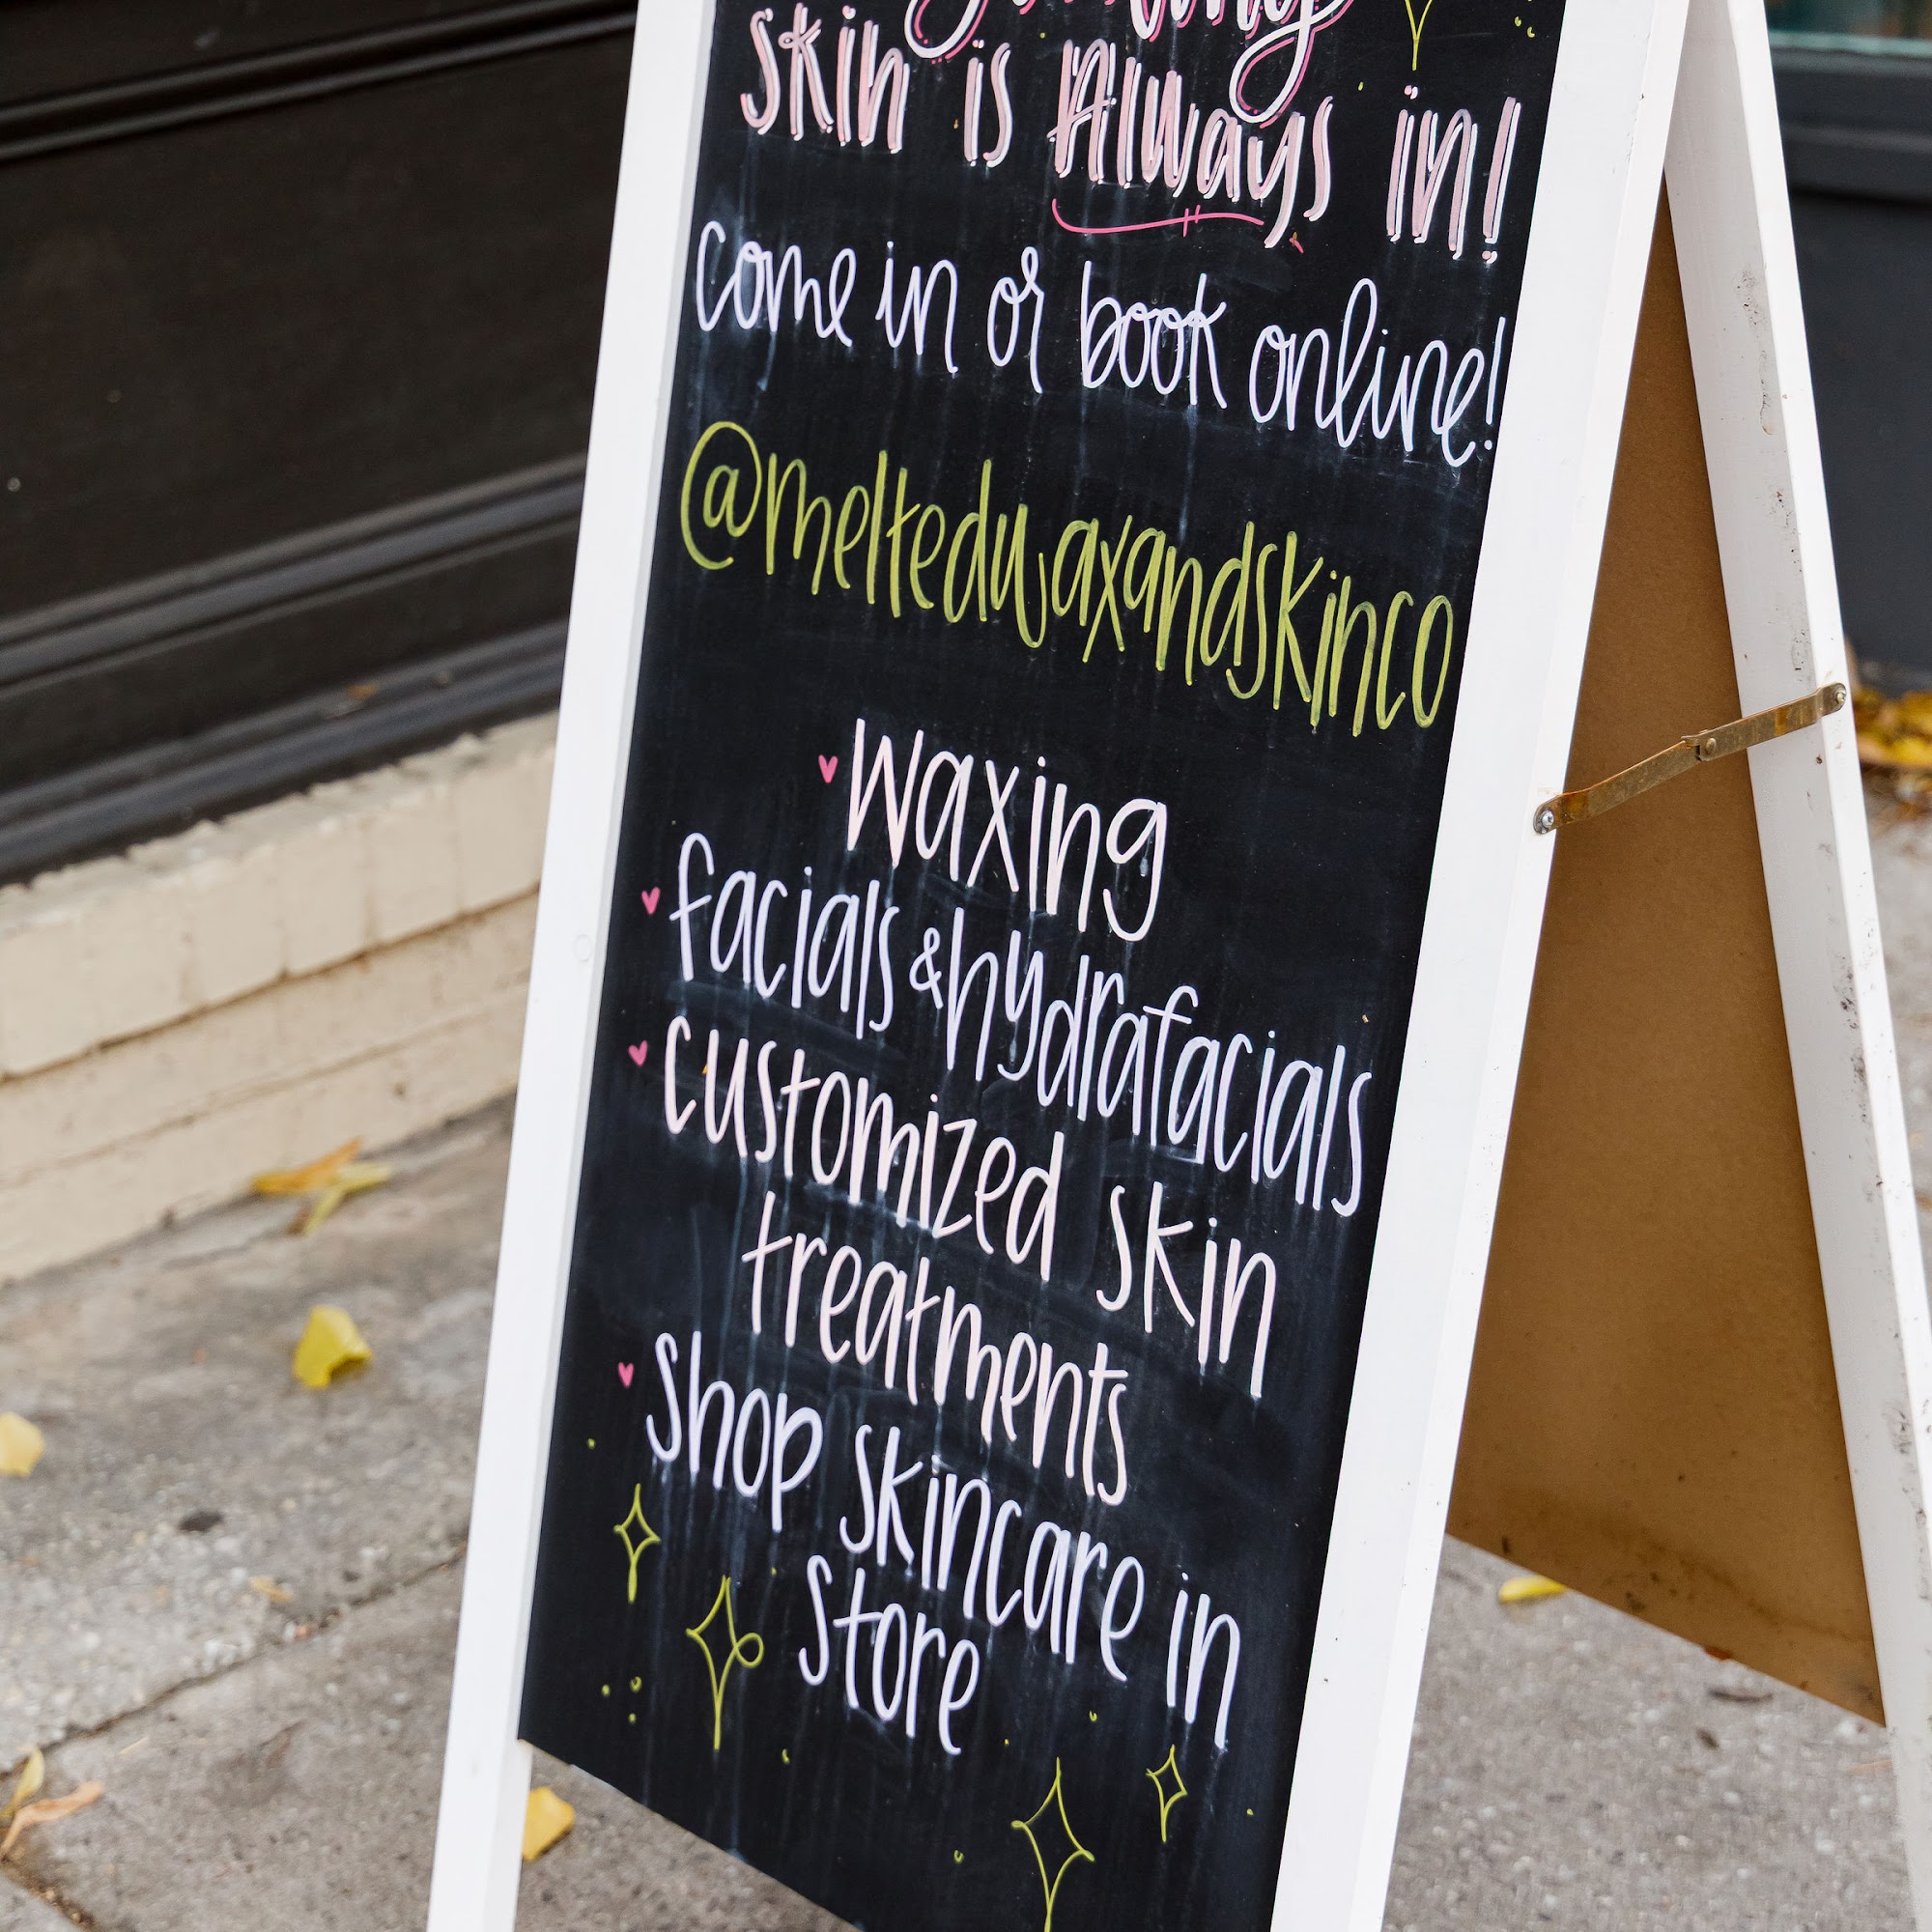 skin is Always in!
come in or book online!
@meltedwaxandskinco
waxing
facials & hydrafacials
customized skin
treatments
Shop skincare in
store